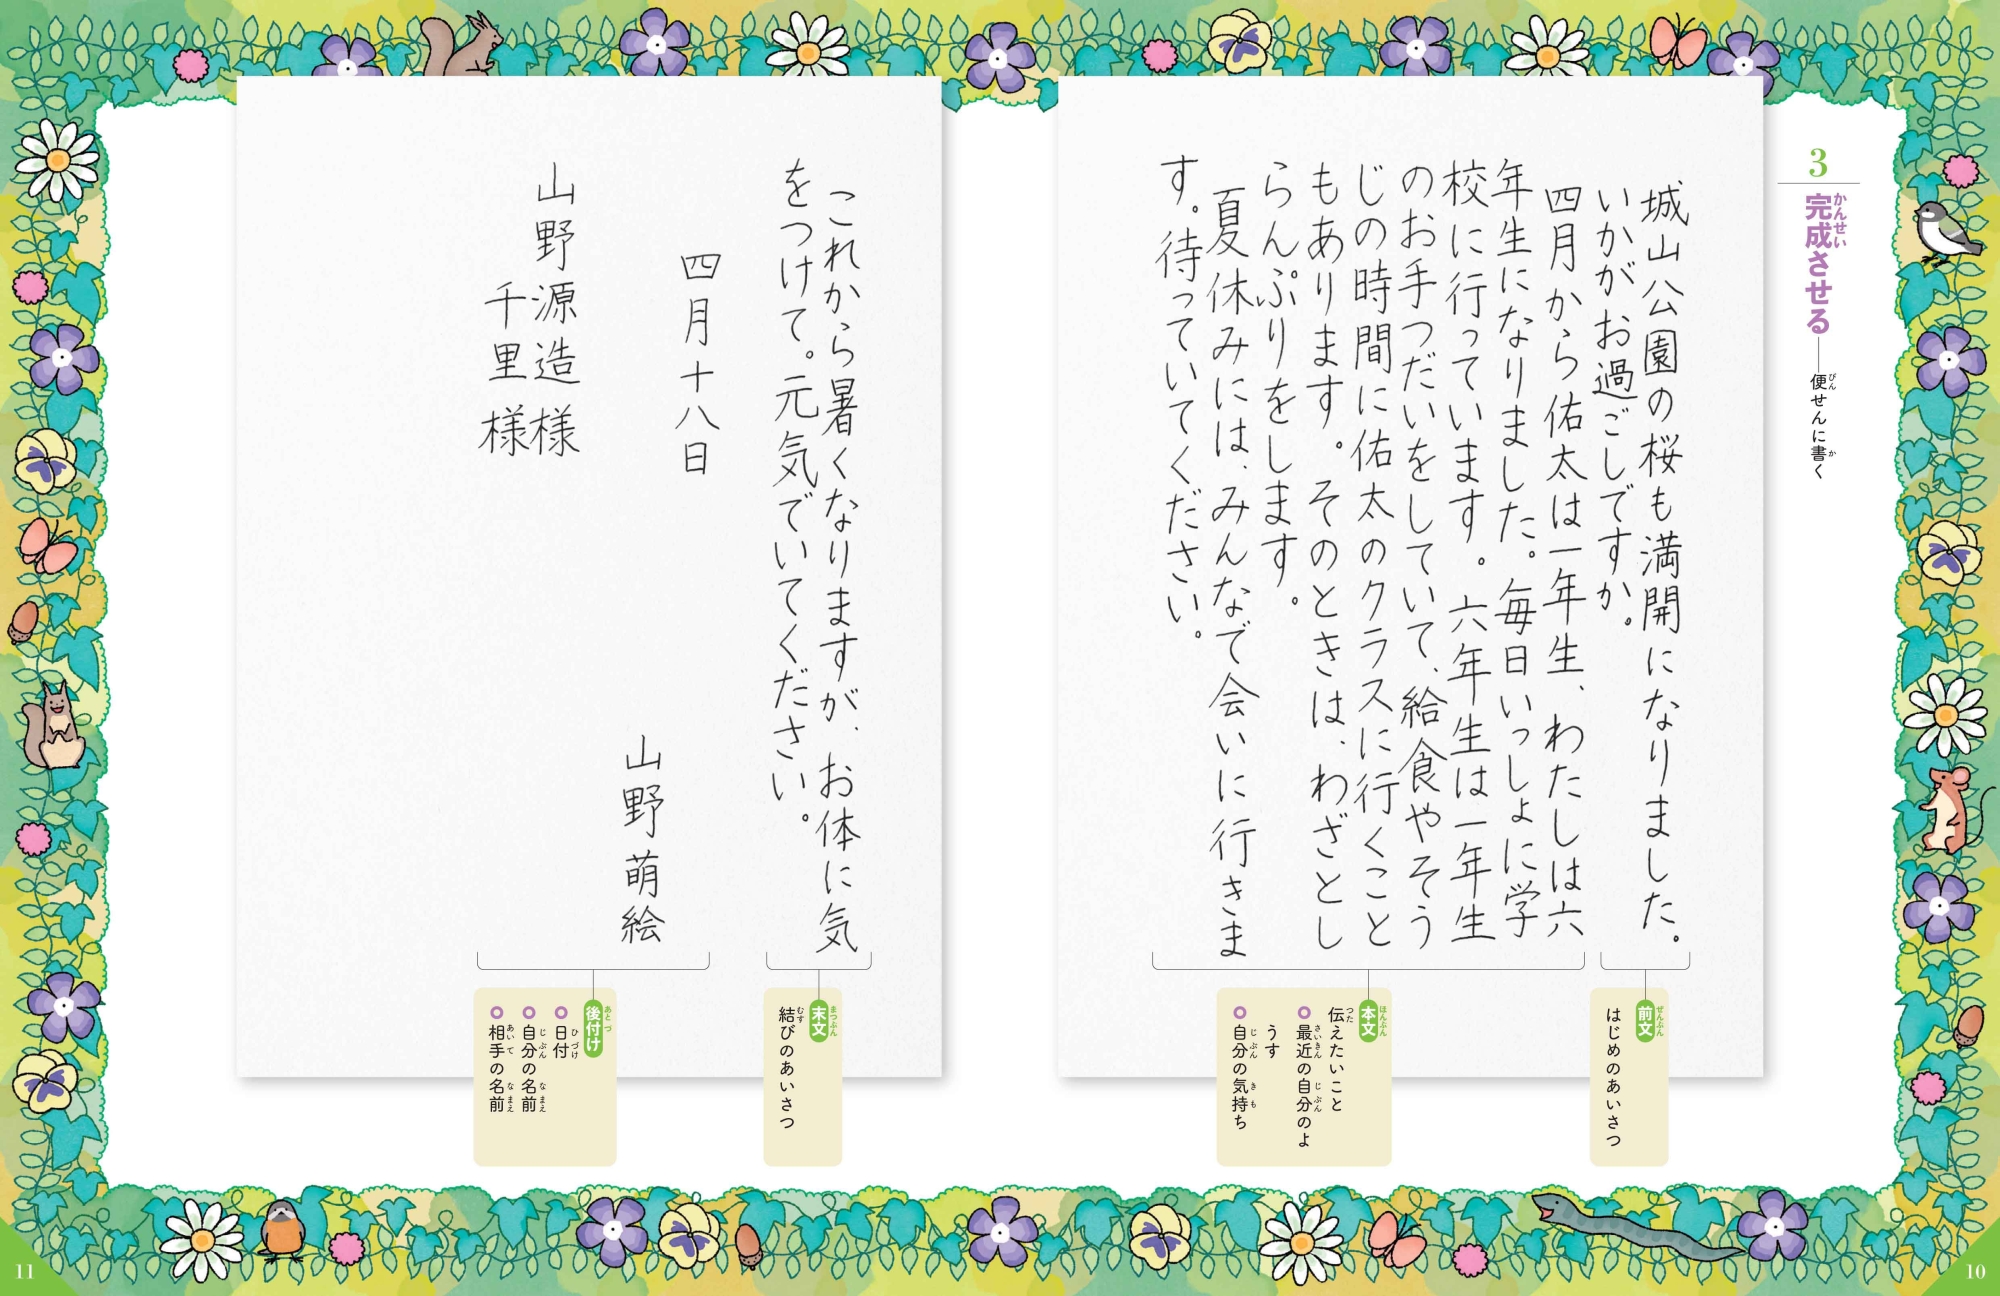 3 完成させる──便せんに書く
城山公園の桜も満開になりました。
いかがお過ごしですか。
四月から佑太は一年生、わたしは六
年生になりました。毎日いっしょに学
校に行っています。六年生は一年生
のお手つだいをしていて、給食やそう
じの時間に佑太のクラスに行くこと
もあります。そのときは、わざとし
らんぷりをします。
夏休みには、みんなで会いに行きま
す。待っていてください。
前文
はじめのあいさつ
本文
伝えたいこと
最近の自分のよ
うす
自分の気持ち
これから暑くなりますが、お体に気
をつけて。元気でいてください。
四月十八日
山野萌絵
山野源造様
千里様
末文
結びのあいさつ
後付け
日付
自分の名前
相手の名前
10
11